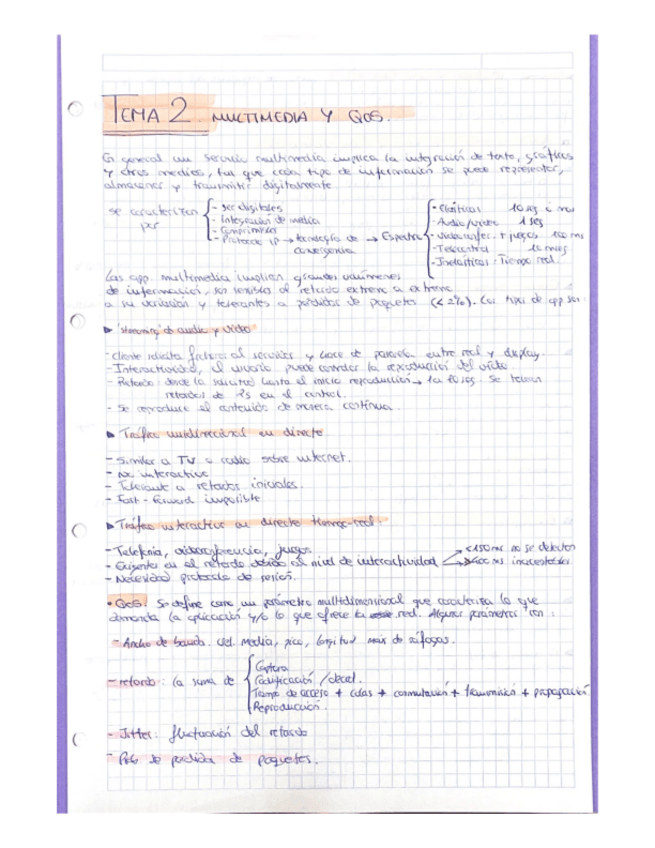 TEMA 2. MULTIMEDIA Y QOS.
En general un servicio multimedia implica la integración de texto, gráficos
y otros medios, tal que cada tipo de información se puede representar,
almacenar y transmitir digitalmente.
se caracterizan por
- ser digitales
- Integración de media
- Comprimidos
- Protocolo IP → tecnología de convergencia → Espectro
- Elásticas 10 seg o más
- Audio/video 1 seg
- Videoconfer. + juegos 100 ms
- Telecontrol 10 mseg
- Inelásticas: Tiempo real.
Las app. multimedia implican grandes volúmenes
de información, son sensibles al retardo extremo a extremo
a su variación y tolerantes a pérdidas de paquetes (<2%). Los tipos de app son:
▸ 'streaming' de audio y video
- Cliente solicita ficheros al servidor y hace de pasarela entre red y display.
- Interactividad, el usuario puede controlar la reproducción del video.
- Retardo: desde la solicitud hasta el inicio reproducción → 1 a 10 seg. Se toleran
retardos de en el control.
- Se reproduce el contenido de manera continua.
▸ Tráfico unidireccional en directo
- Similar a TV o radio sobre internet.
- No interactivo
- Tolerante a retardos iniciales.
- Fast-forward imposible
▸ Tráfico interactivo en directo tiempo-real.
- Telefonía, videoconferencia, juegos.
- en el retardo debido al nivel de interactividad
<150 ms no se detectan
>400 ms inaceptables
- Necesidad protocolo de sesión.
• QoS: Se define como un parámetro multidimensional que caracteriza lo que
demanda la aplicación y/o lo que ofrece la red. Algunos parámetros son:
- Ancho de banda. Vel. media, pico, longitud máx de ráfagas.
- retardo: la suma de
Captura
Codificación / decod.
Tiempo de acceso + colas + conmutación + transmisión + propagación
Reproducción.
- Jitter: fluctuación del retardo
- Prob. de pérdida de paquetes.